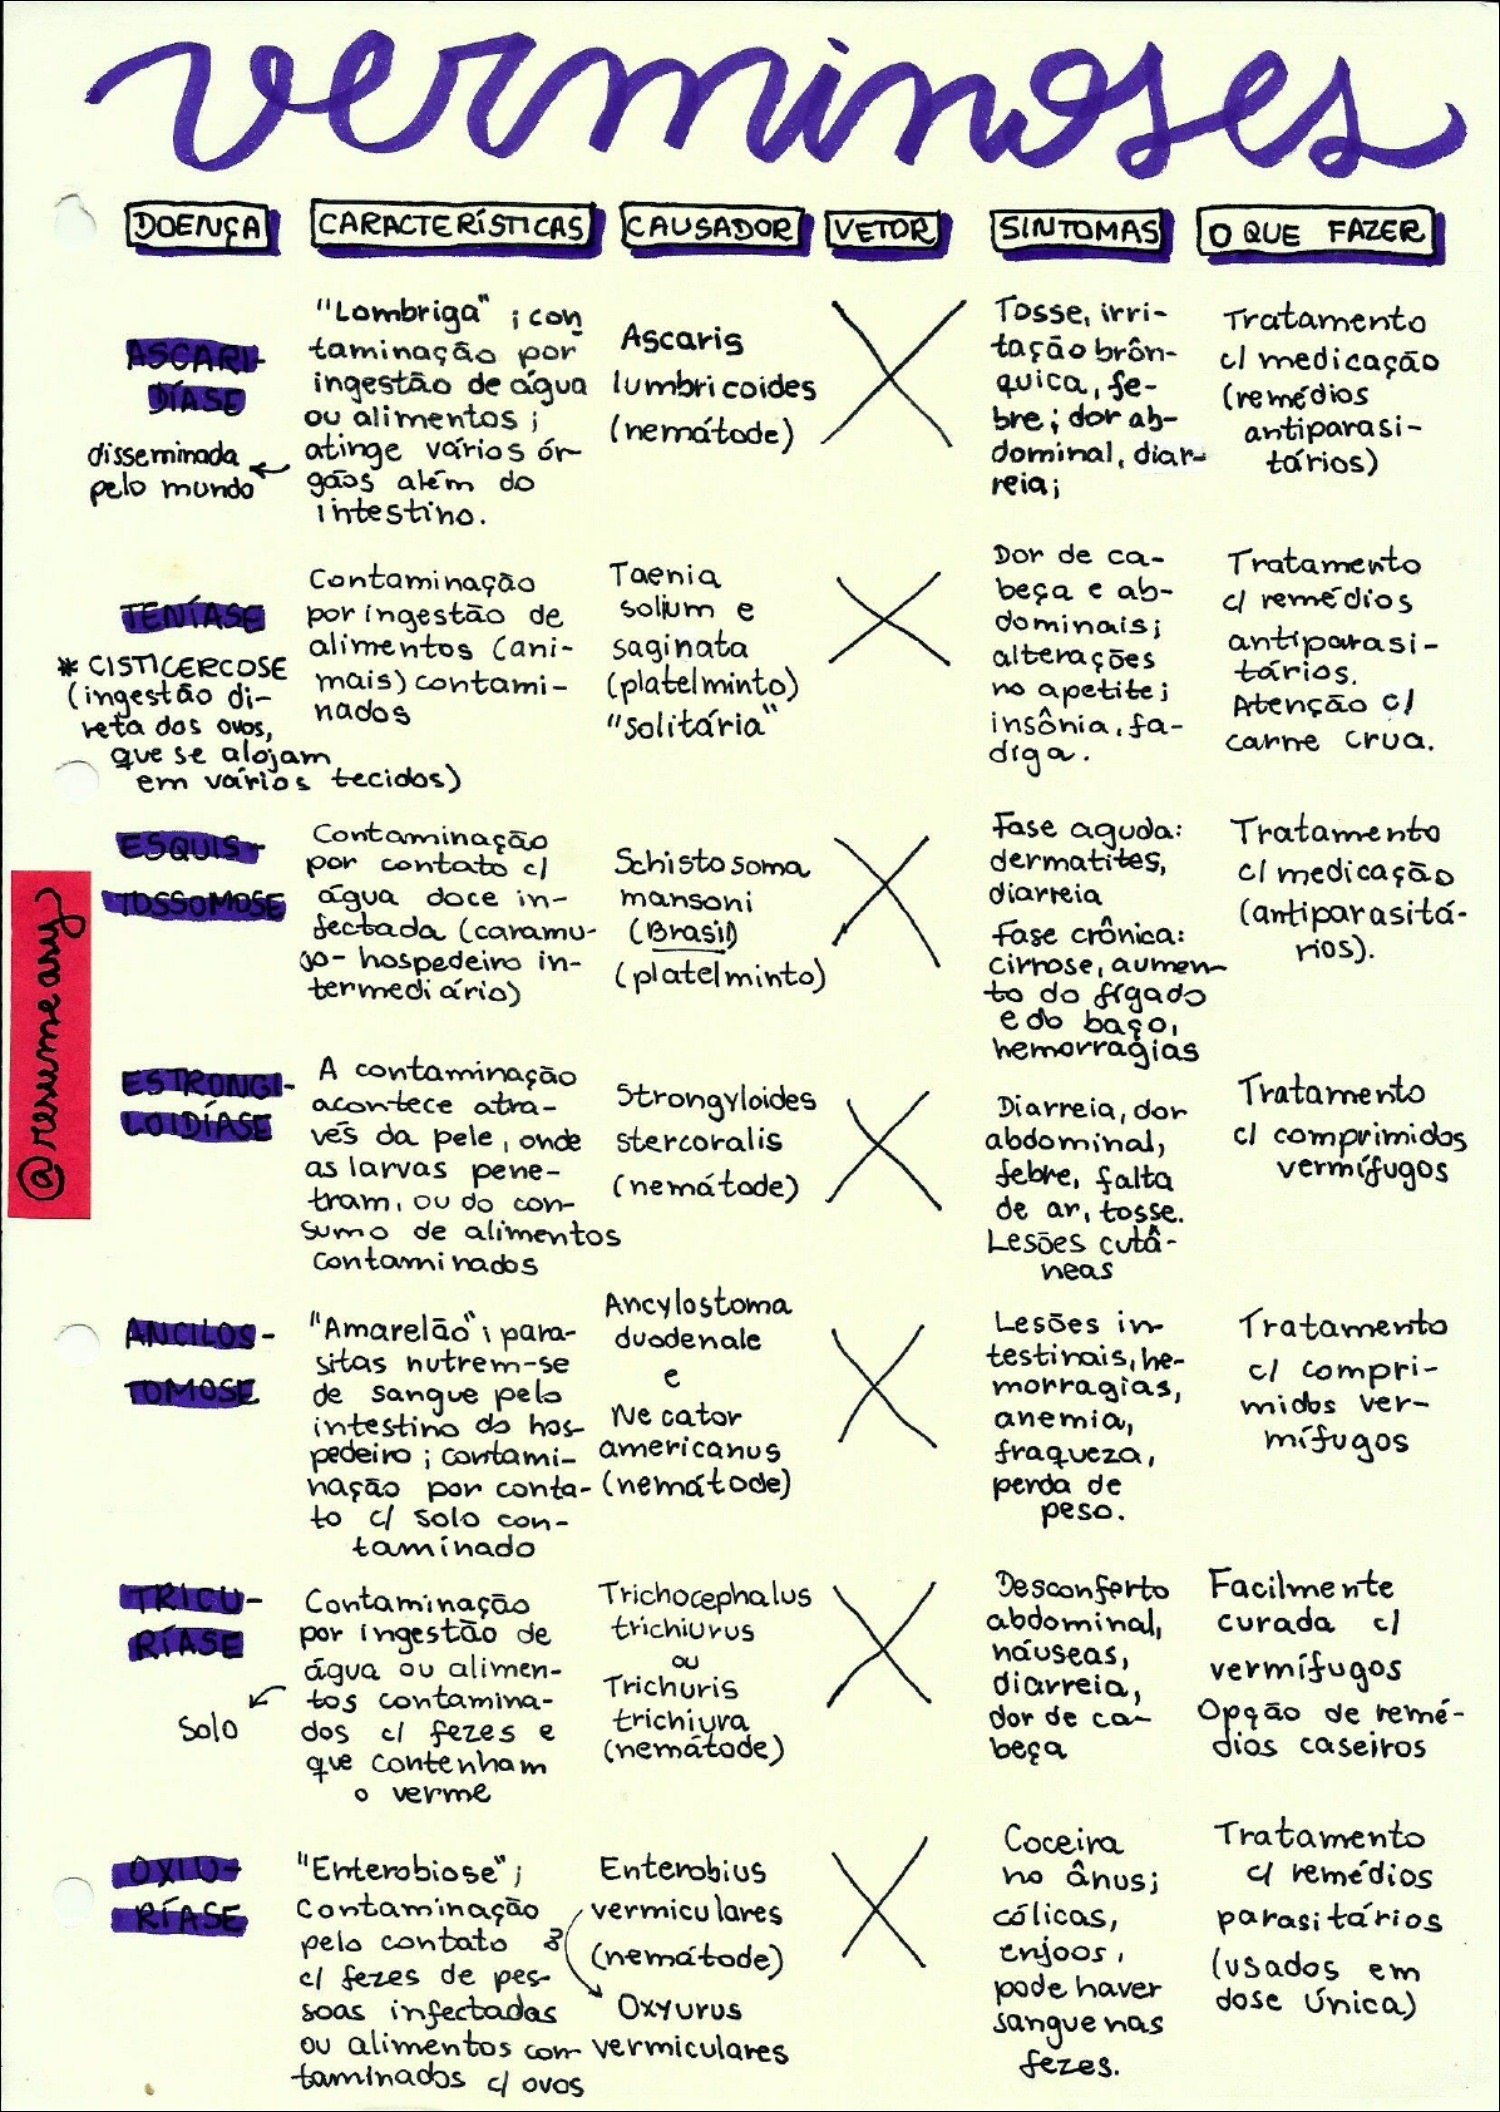 verminoses
DOENÇA
CARACTERÍSTICAS
CAUSADOR
VETOR
SINTOMAS
O QUE FAZER
ASCARI-
DÍASE
disseminada
pelo mundo
"Lombriga"; con
taminação por
ingestão de água
ou alimentos;
atinge vários ór-
gãos além do
intestino.
Ascaris
lumbricoides
(nemátode)
Tosse, irri-
tação brôn-
quica, fe-
bre; dor ab-
dominal, diar-
reia;
Tratamento
c/ medicação
(remédios
antiparasi-
tários)
TENÍASE
* CISTICERCOSE
(ingestão di-
reta dos ovos,
que se alojam
em vários tecidos)
Contaminação
por ingestão de
alimentos (ani-
mais) contami-
nados
Taenia
solium e
saginata
(platelminto)
"solitária"
Dor de ca-
beça e ab-
dominais;
alterações
no apetite;
insônia, fa-
diga.
Tratamento
c/ remédios
antiparasi-
tários.
Atenção c/
carne crua.
ESQUIS-
TOSSOMOSE
Contaminação
por contato c/
água doce in-
fectada (caramu-
jo- hospedeiro in-
termediário)
Schistosoma
mansoni
(Brasil)
(platelminto)
Fase aguda:
dermatites,
diarreia
Fase crônica:
cirrose, aumen-
to do fígado
e do baço,
hemorragias
Tratamento
c/ medicação
(antiparasitá-
rios).
@resumeany
ESTRONGI-
LOIDÍASE
A contaminação
acontece atra-
vés da pele, onde
as larvas pene-
tram, ou do con-
sumo de alimentos
contaminados
Strongyloides
stercoralis
(nemátode)
Diarreia, dor
abdominal,
febre, falta
de ar, tosse.
Lesões cutâ-
neas
Tratamento
c/ comprimidos
vermífugos
ANCILOS-
TOMOSE
"Amarelão"; para-
sitas nutrem-se
de sangue pelo
intestino do hos-
pedeiro; contami-
nação por conta-
to c/ solo con-
taminado
Ancylostoma
duodenale
e
Necator
americanus
(nemátode)
Lesões in-
testinais, he-
morragias,
anemia,
fraqueza,
perda de
peso.
Tratamento
c/ compri-
midos ver-
mífugos
TRICU-
RÍASE
solo
Contaminação
por ingestão de
água ou alimen-
tos contamina-
dos c/ fezes e
que contenham
o verme
Trichocephalus
trichiurus
ou
Trichuris
trichiura
(nemátode)
Desconforto
abdominal,
náuseas,
diarreia,
dor de ca-
beça
Facilmente
curada c/
vermífugos
Opção de remé-
dios caseiros
OXIU-
RÍASE
"Enterobiose";
Contaminação
pelo contato
c/ fezes de pes-
soas infectadas
ou alimentos con-
taminados c/ ovos
Enterobius
vermiculares
(nemátode)
Oxyurus
vermiculares
Coceira
no ânus;
cólicas,
enjoos,
pode haver
sangue nas
fezes.
Tratamento
c/ remédios
parasitários
(usados em
dose única)